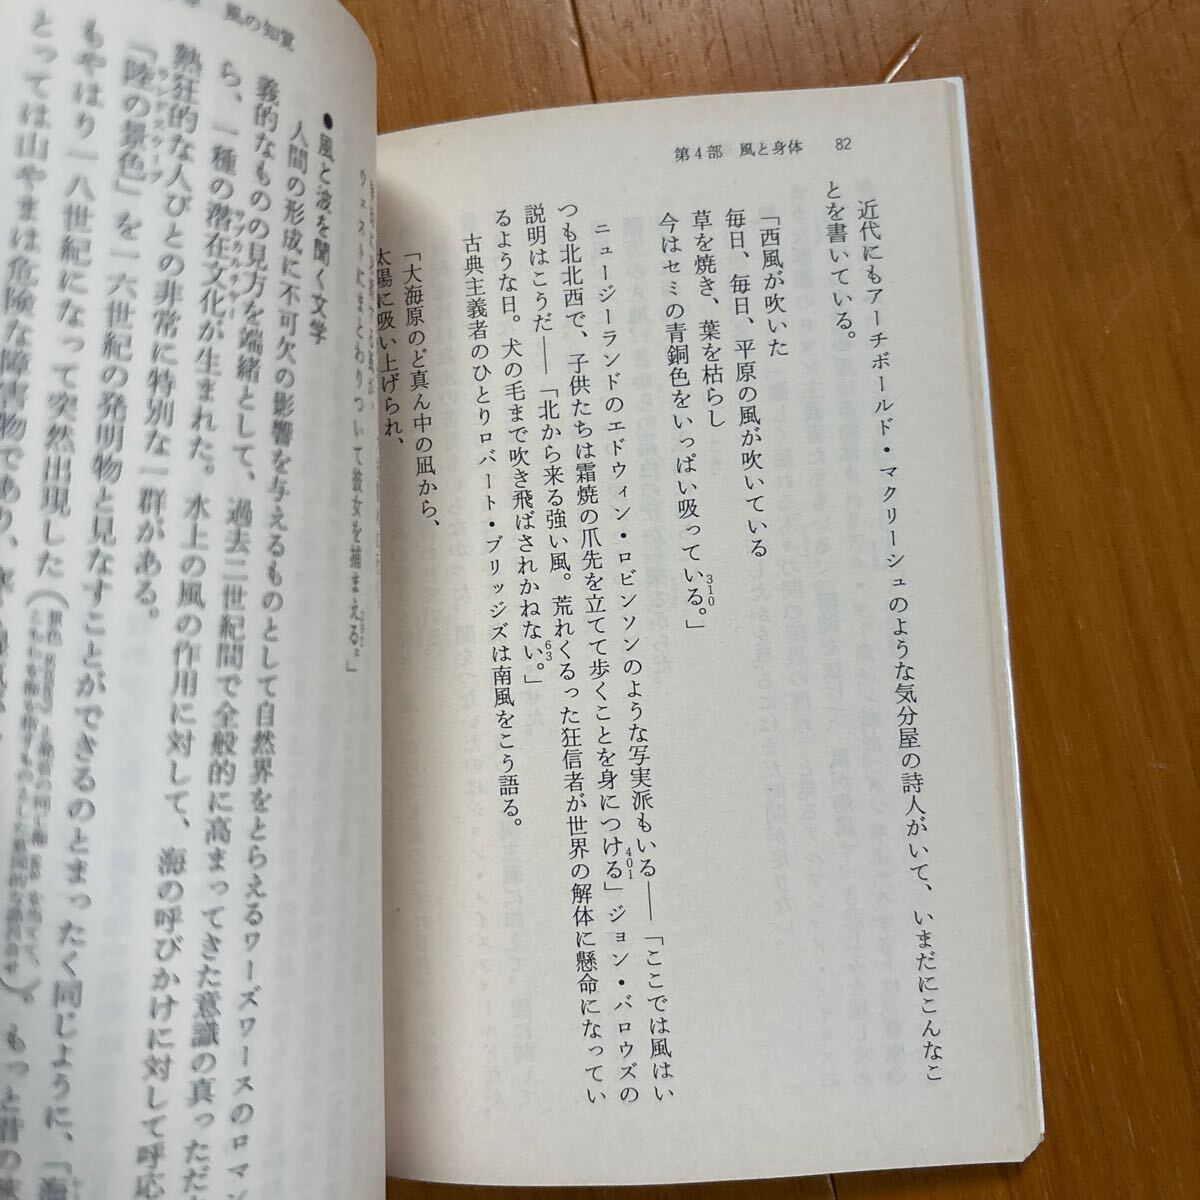 第4部　風と身体　82
近代にもアーチボールド・マクリーシュのような気分屋の詩人がいて、いまだにこんなこ
とを書いている。
「西風が吹いた
毎日、毎日、平原の風が吹いている
草を焼き、葉を枯らし
今はセミの青銅色をいっぱい吸っている。」310
ニュージーランドのエドウィン・ロビンソンのような写実派もいる——「ここでは風はい
つも北北西で、子供たちは霜焼の爪先を立てて歩くことを身につける」401ジョン・バロウズの
説明はこうだ——「北から来る強い風。荒れくるった狂信者が世界の解体に懸命になってい
るような日。犬の毛まで吹き飛ばされかねない。」63
古典主義者のひとりロバート・ブリッジズは南風をこう語る。
「大海原のど真ん中の凪から、
太陽に吸い上げられ、
風の知覚
まとわりついて彼女を捕まえる。」
●風と波を聞く文学
人間の形成に不可欠の影響を与えるものとして自然界をとらえるワーズワースのロマン
義的なものの見方を端緒として、過去二世紀間で全般的に高まってきた意識の真っただ
ら、一種の潜在文化が生まれた。水上の風の作用に対して、海の呼びかけに対して呼応
サブカルチャー
熱狂的な人びとの非常に特別な一群がある。
「陸の景色」を一六世紀の発明物と見なすことができるのとまったく同じように、「海
ランドスケープ
もやはり一八世紀になって突然出現した
とっては山やまは危険な障害物であり、
もっと昔の